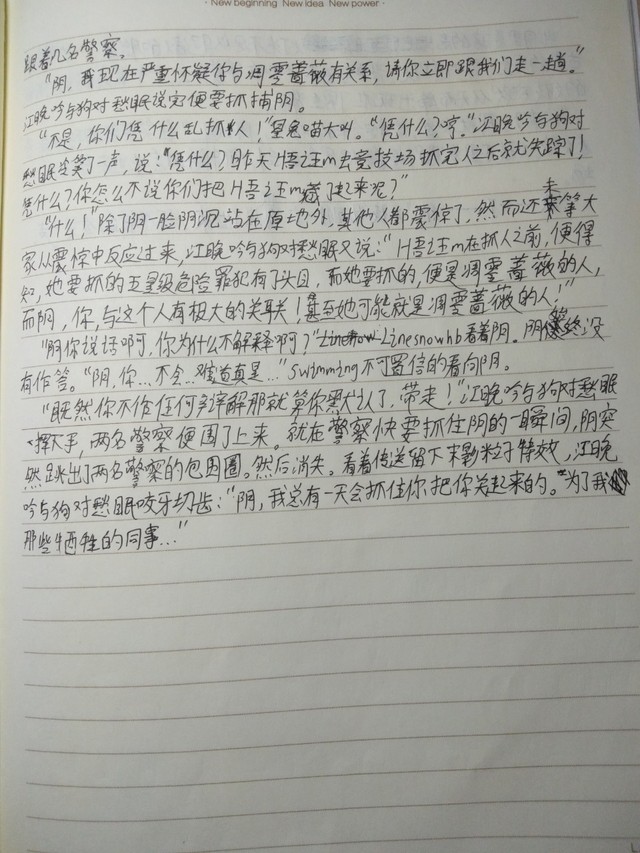 · New beginning  New idea  New power ·
跟着几名警察。
“阴，我现在严重怀疑你与凋零蔷薇有关系，请你立即跟我们走一趟。”
江晚吟与狗对愁眠说完便要抓捕阴。
“不是，你们凭什么乱抓人！”星鬼喵大叫。“凭什么？哼。”江晚吟与狗对
愁眠冷笑了一声，说：“凭什么？昨天H悟汪m去竞技场抓完人之后就失踪了！
凭什么？你怎么不说你们把H悟汪m藏了起来呢？”
“什么！”除了阴一脸阴沉站在原地外，其他人都震惊了，然而还未等大
家从震惊中反应过来，江晚吟与狗对愁眠又说：“H悟汪m在抓人之前，便得
知，她要抓的五星级危险罪犯有了头目，而她要抓的，便是凋零蔷薇的人，
而阴，你，与这个人有极大的关联！甚至她可能就是凋零蔷薇的人！”
“阴你说话啊，你为什么不解释啊？”Linesnowhb看着阴。阴始终没
有作答。“阴，你...不会...难道真是...”Swimming不可置信的看向阴。
“既然你不作任何辩解那就算你默认了，带走！”江晚吟与狗对愁眠
一挥大手，两名警察便围了上来。就在警察快要抓住阴的一瞬间，阴突
然跳出了两名警察的包围圈。然后消失。看着传送留下末影粒子特效，江晚
吟与狗对愁眠咬牙切齿：“阴，我总有一天会抓住你，把你关起来的。为了我
那些牺牲的同事...”